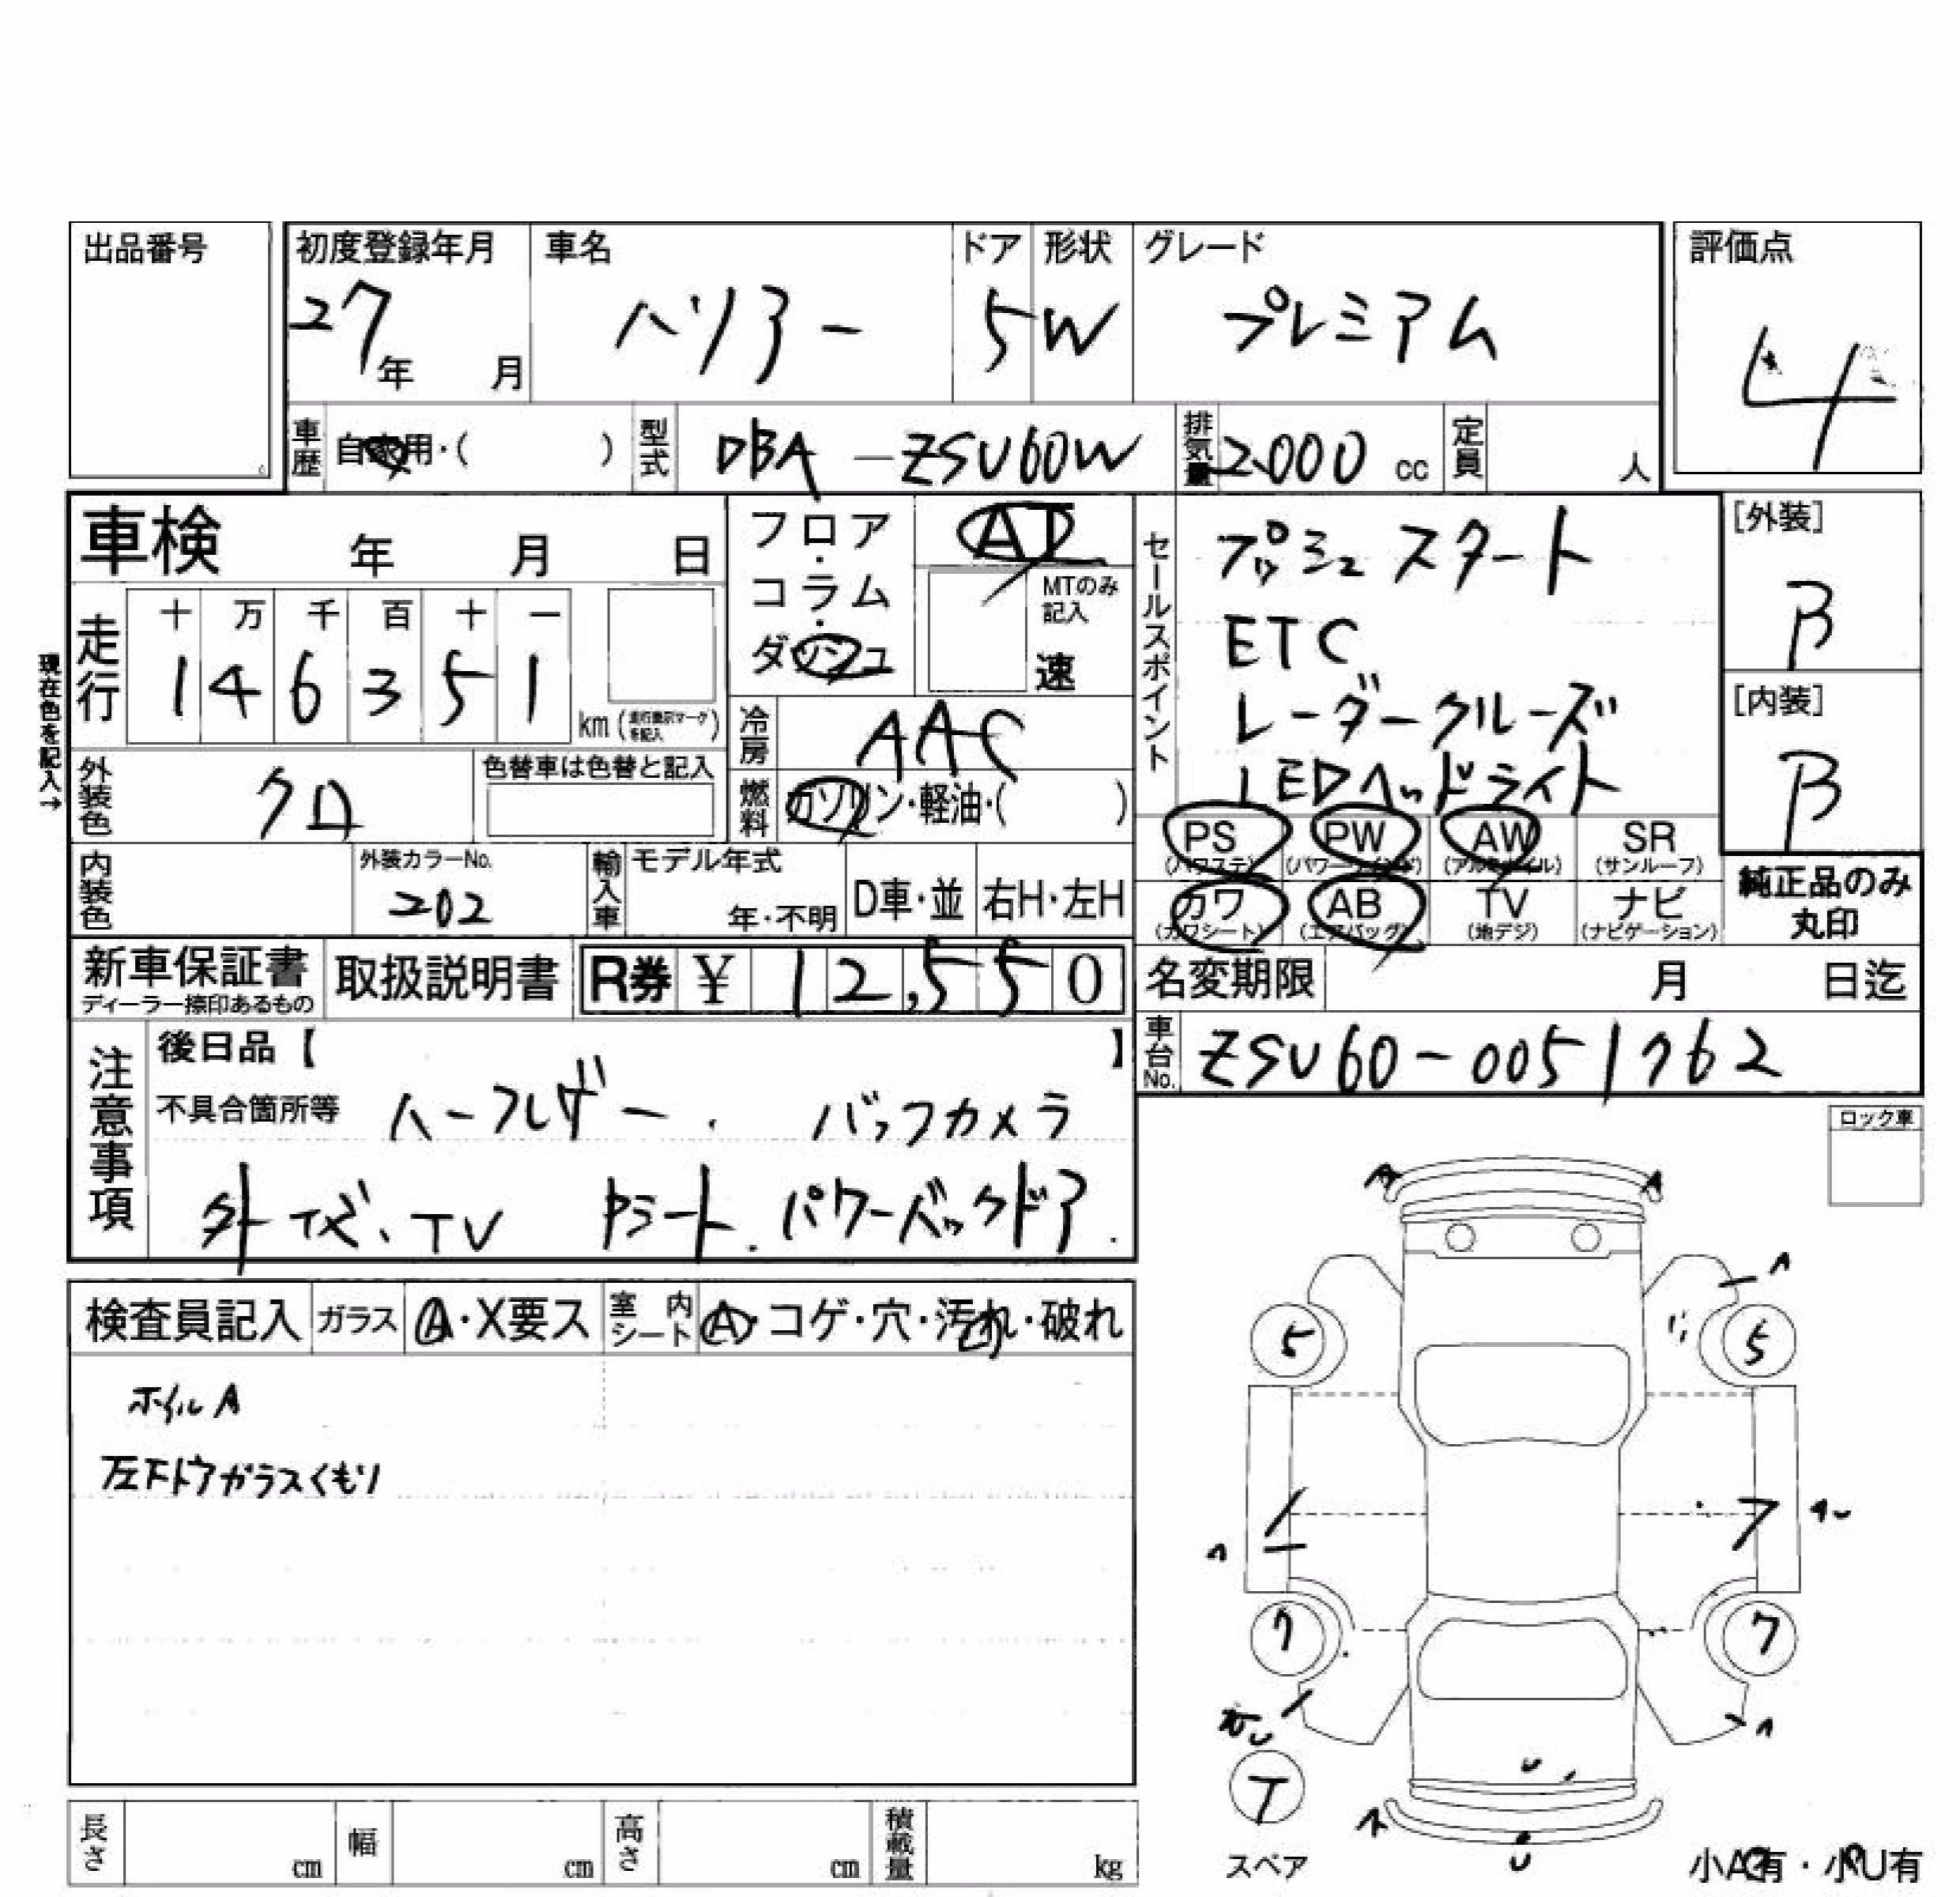 出品番号
初度登録年月 車名 ドア 形状 グレード 評価点
27年 月 ハリアー 5 W プレミアム 4
車歴 自家用・( ) 型式 DBA-ZSU60W 排気量 2000 cc 定員 人
車検 年 月 日
フロア・コラム・ダッシュ
AT
MTのみ記入
速
セールスポイント
プッシュスタート
ETC
レーダークルーズ
LEDヘッドライト
[外装]
B
[内装]
B
現在色を記入→
走行 十 万 千 百 十 一
1 4 6 3 5 1 km (走行表示マークを記入)
冷房 AAC
外装色 クロ 色替車は色替と記入
燃料 ガソリン・軽油・( )
PS (パワステ) PW (パワーウィンド) AW (アルミホイル) SR (サンルーフ)
カワ (カワシート) AB (エアバッグ) TV (地デジ) ナビ (ナビゲーション)
純正品のみ
丸印
内装色 外装カラーNo. 202 輸入車 モデル年式 年・不明 D車・並 右H・左H
新車保証書 ディーラー捺印あるもの 取扱説明書 R券 ¥ 12,550
名変期限 月 日迄
車台No. ZSU60-0051762
注意事項
後日品【 】
不具合箇所等 ハーフレザー. バックカメラ
外ナビ、TV Pシート. パワーバックドア.
ロック車
検査員記入 ガラス A・X要ス 室内シート A・コゲ・穴・汚れ・破れ
ホイルA
左FドアガラスくもりA
A A
5 5
7 7
T
スペア
小A有・小U有
長さ cm 幅 cm 高さ cm 積載量 kg